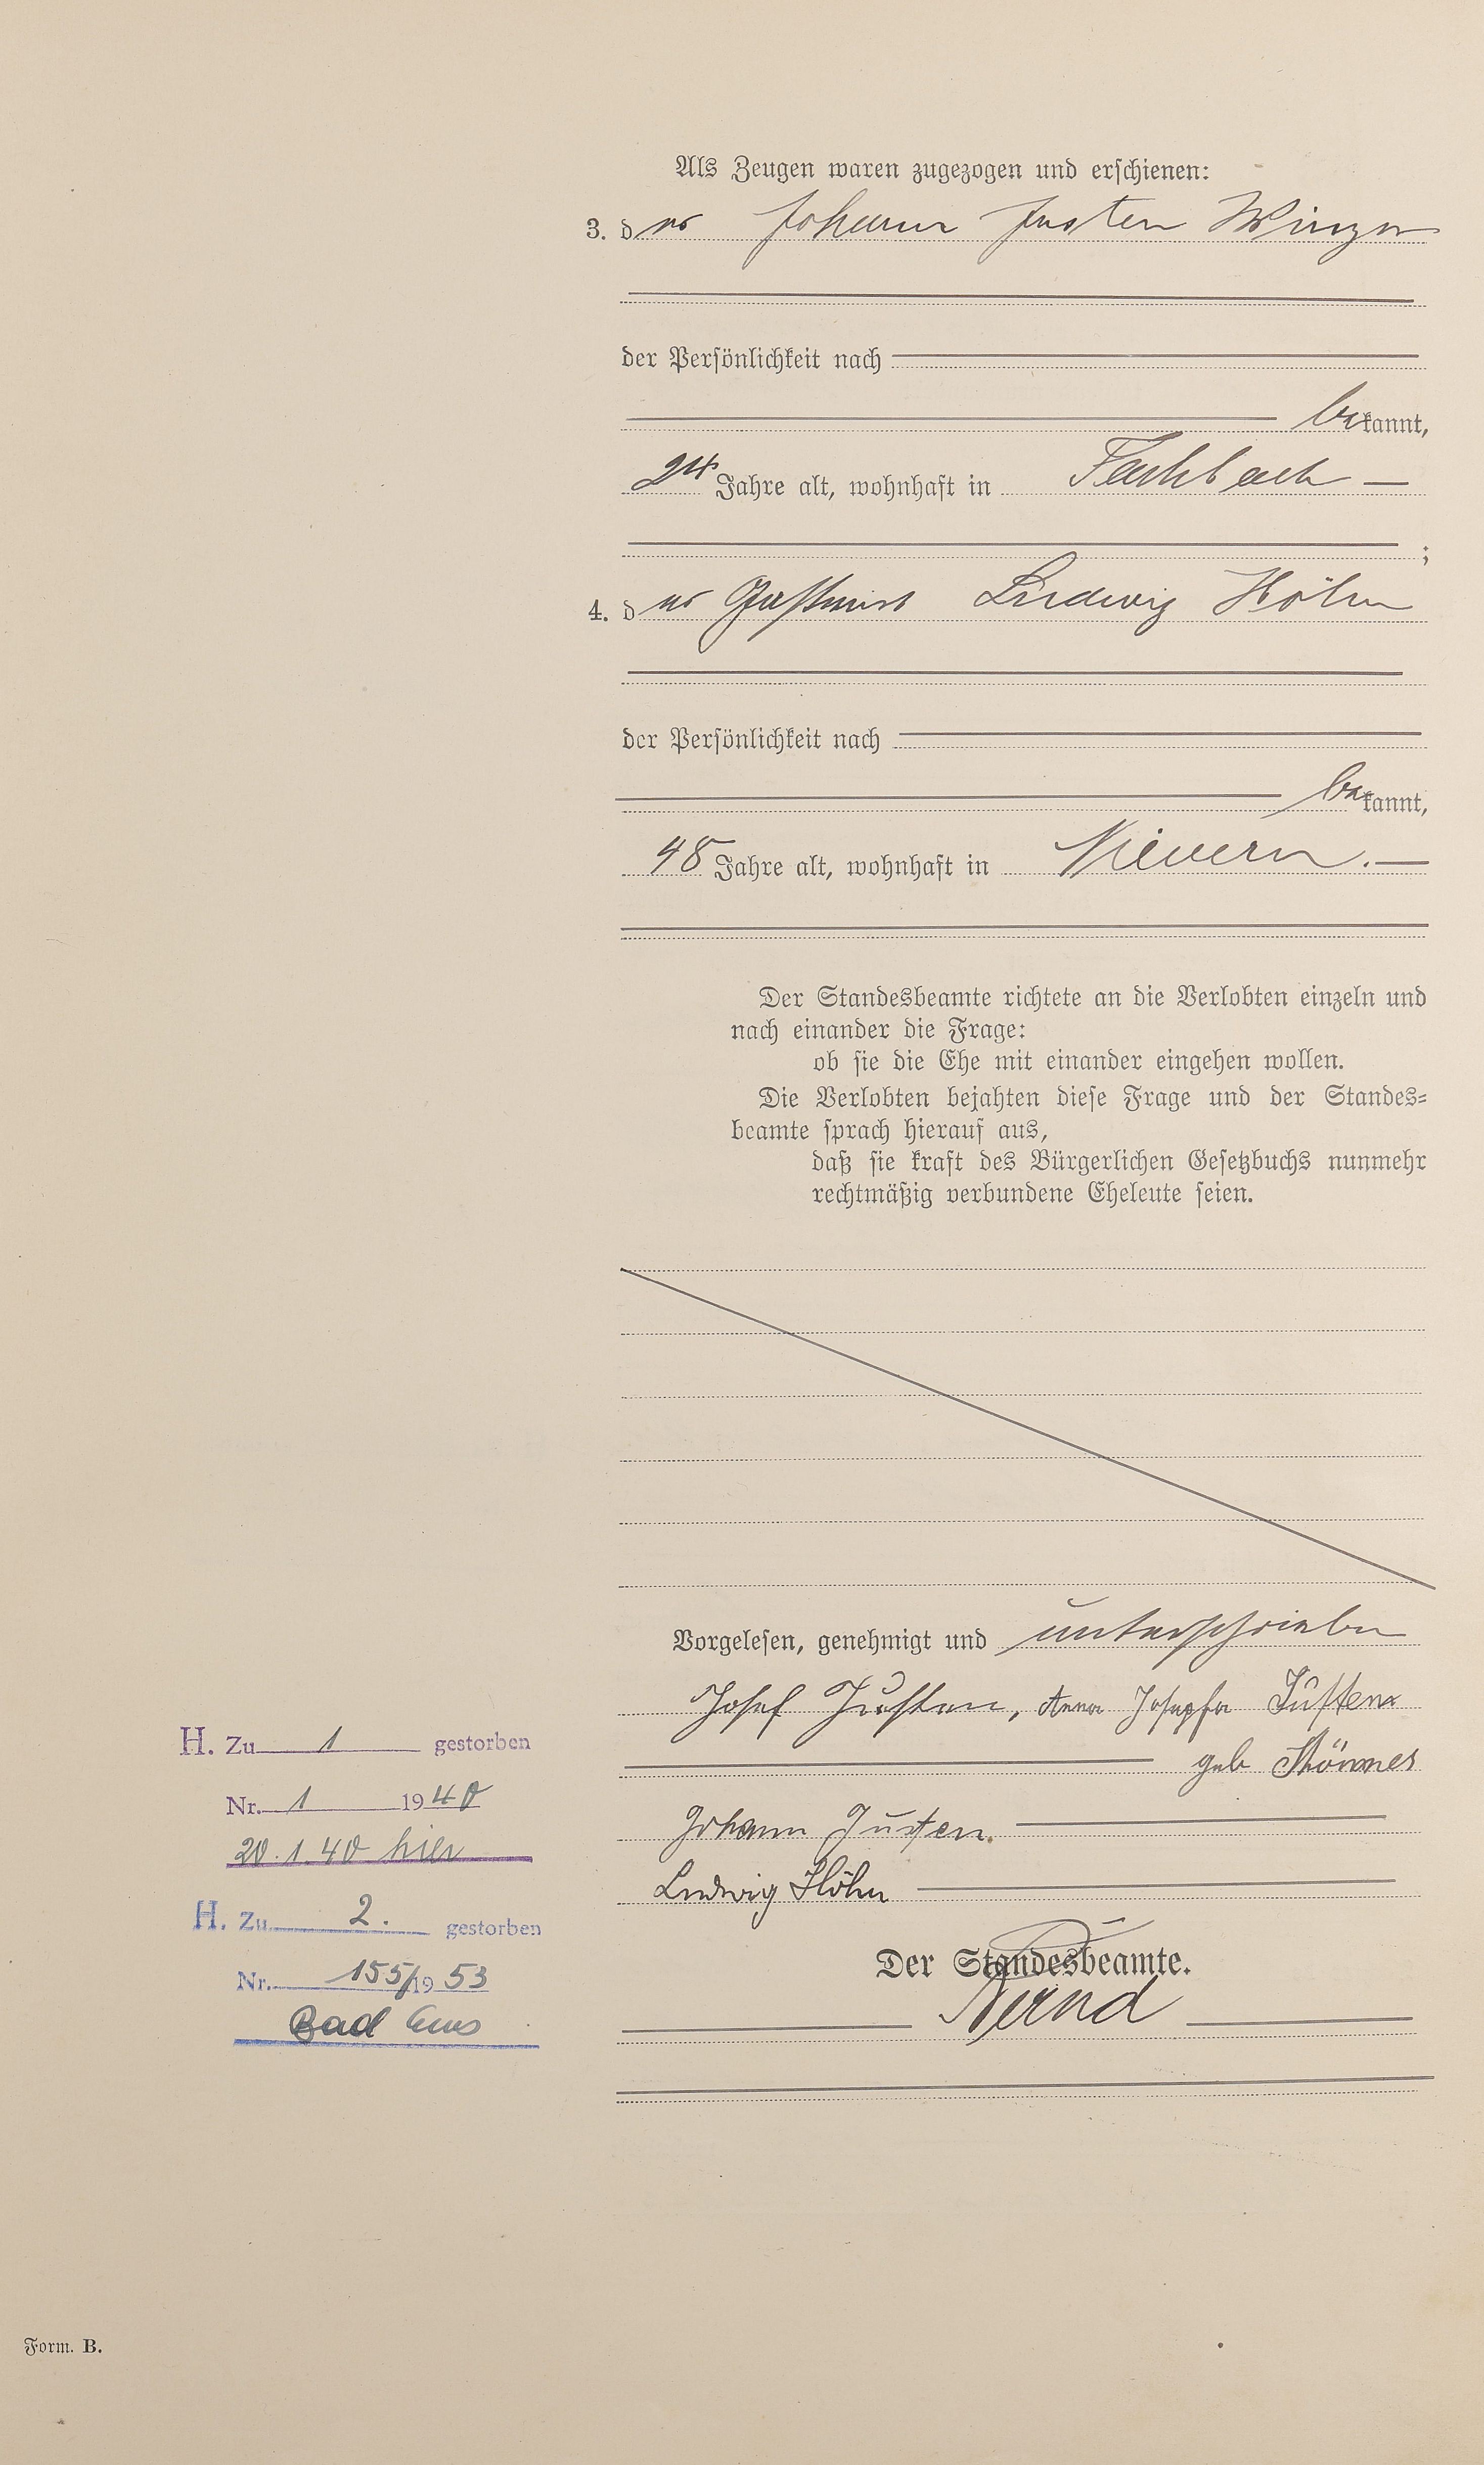 Als Zeugen waren zugezogen und erschienen:
3. der Johann Justen Winzer
der Persönlichkeit nach
bekannt,
24 Jahre alt, wohnhaft in Fachbach —
;
4. der Gastwirt Ludwig Höhn
der Persönlichkeit nach
bekannt,
48 Jahre alt, wohnhaft in Nievern. —
Der Standesbeamte richtete an die Verlobten einzeln und
nach einander die Frage:
ob sie die Ehe mit einander eingehen wollen.
Die Verlobten bejahten diese Frage und der Standes-
beamte sprach hierauf aus,
daß sie kraft des Bürgerlichen Gesetzbuchs nunmehr
rechtmäßig verbundene Eheleute seien.
Vorgelesen, genehmigt und unterschrieben
Josef Justen, Anna Josepfa Justen
geb
Johann Justen.
Ludwig Höhn
Der Standesbeamte.
H. Zu 1 gestorben
Nr. 1 1940
20.1.40 hier
H. Zu 2. gestorben
Nr. 155/1953
Bad Ems
Form. B.